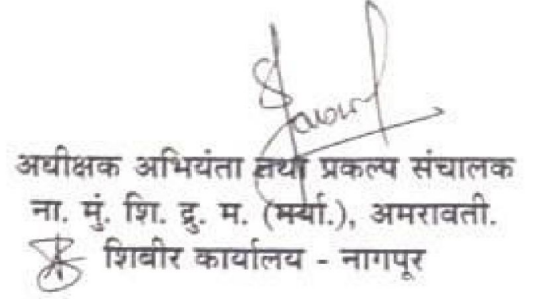 अधीक्षक अभियंता तथा प्रकल्प संचालक
ना. मुं. शि. द्रु. म. (मर्या.), अमरावती.
शिवीर कार्यालय - नागपूर